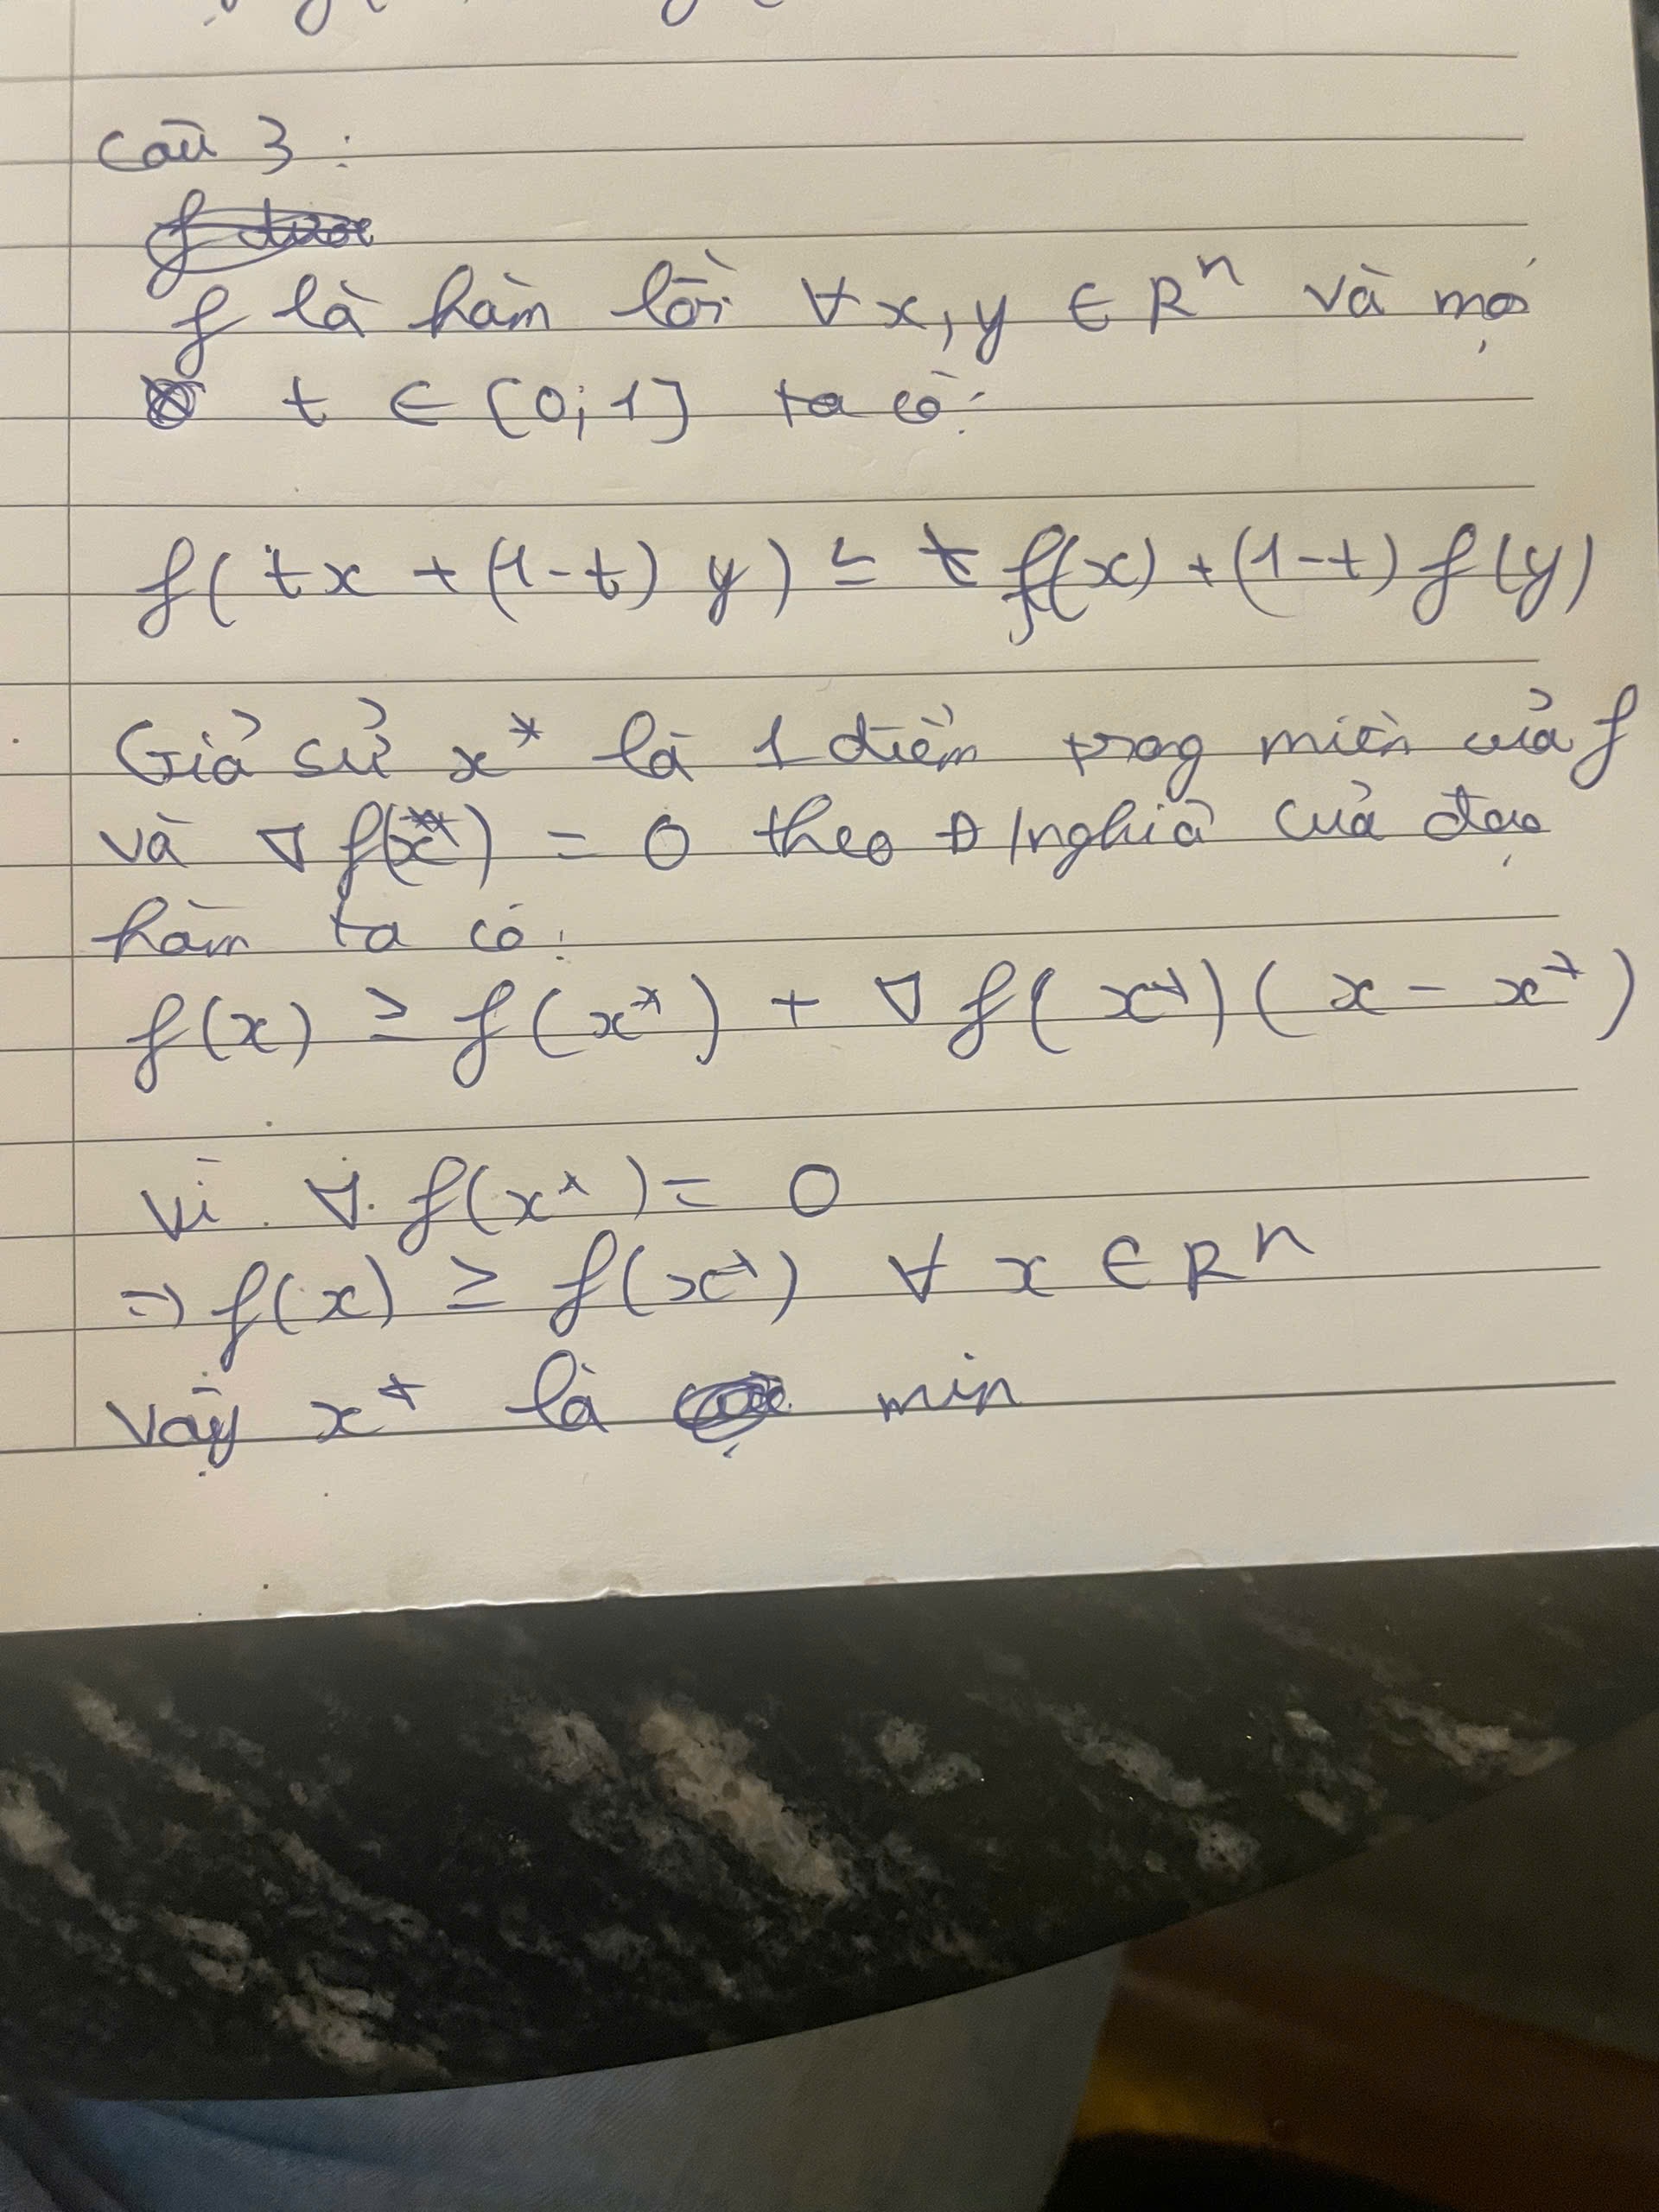 Câu 3 :
f là hàm lồi ∀ x, y ∈ R^n và mọi
t ∈ [0; 1] ta có:
f( tx + (1-t) y) ≤ t f(x) + (1-t) f(y)
Giả sử x* là 1 điểm trog miền của f
và ∇ f(x*) = 0 theo Đ/nghĩa của đạo
hàm ta có:
f(x) ≥ f(x*) + ∇ f(x*) (x - x*)
Vì ∇ f(x*) = 0
⇒ f(x) ≥ f(x*) ∀ x ∈ R^n
Vậy x* là min